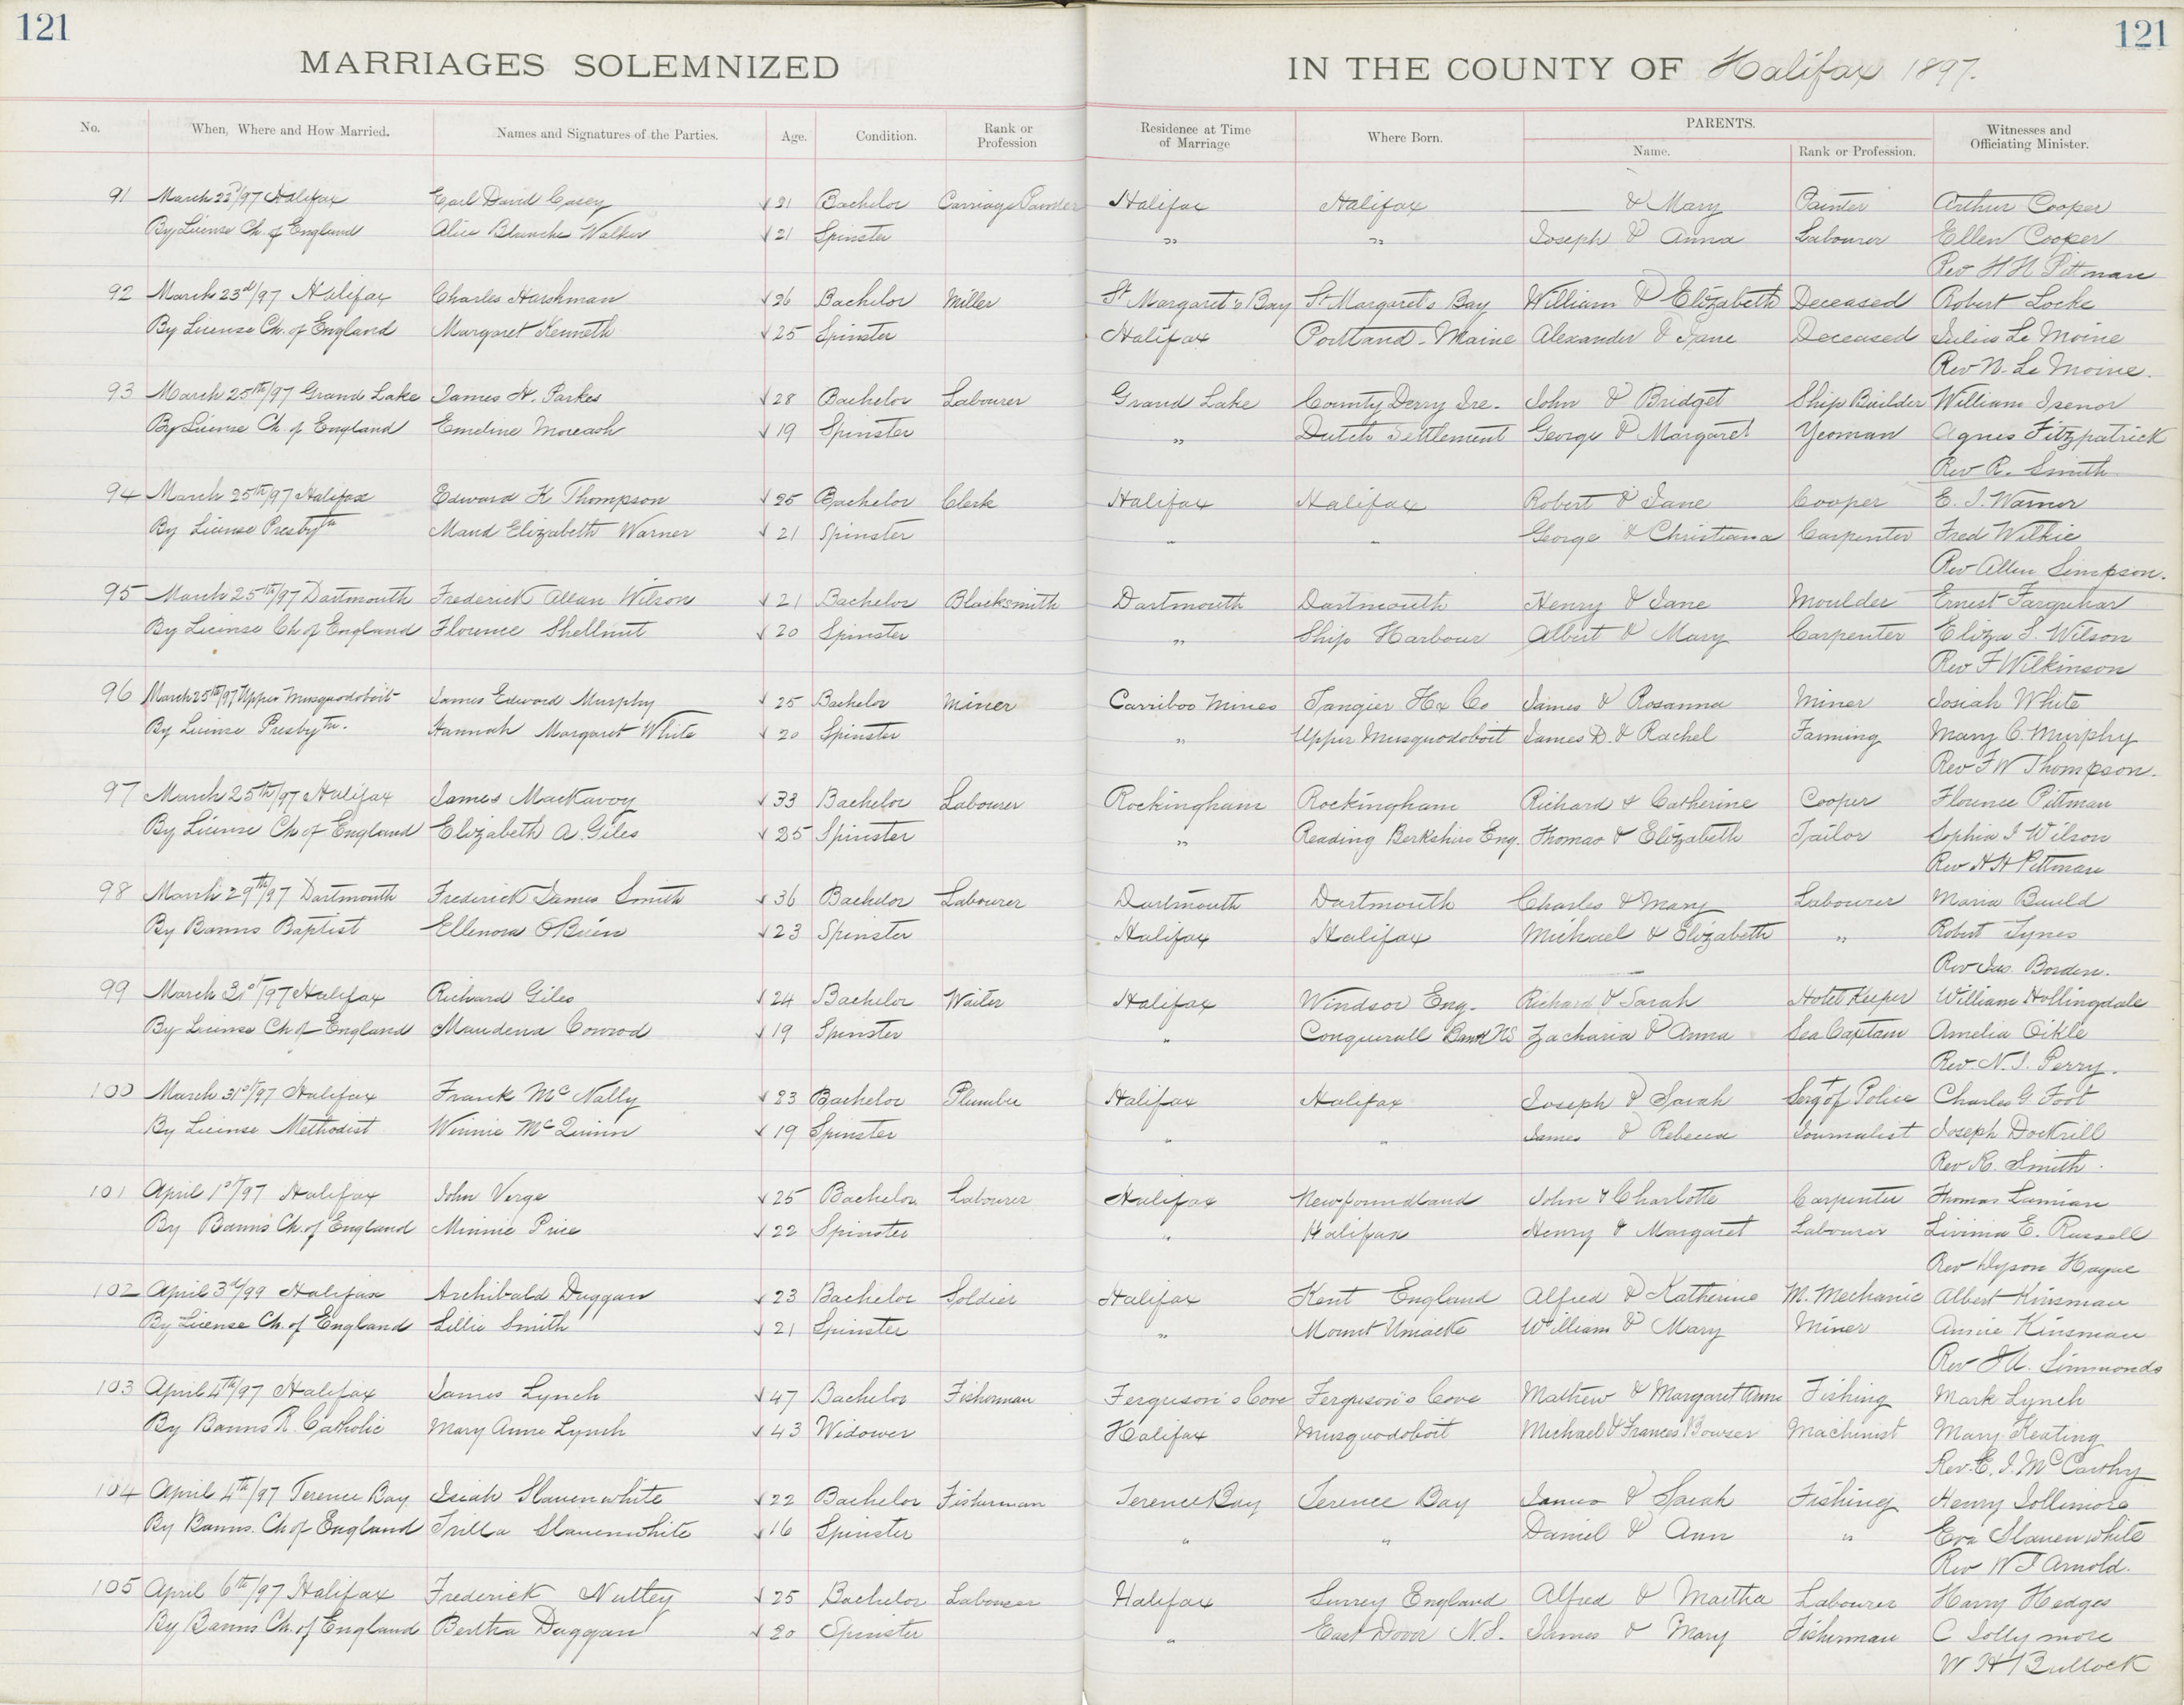 121
121
MARRIAGES SOLEMNIZED IN THE COUNTY OF Halifax 1897.
No. When, Where and How Married. Names and Signatures of the Parties. Age. Condition. Rank or Profession Residence at Time of Marriage Where Born. PARENTS. Name. Rank or Profession. Witnesses and Officiating Minister.
91 March 22d/97 Halifax Earl David Casey 21 Bachelor Carriage Painter Halifax Halifax —— & Mary Painter Arthur Cooper
By License Ch. of England Alice Blanche Walker 21 Spinster " " Joseph & Anna Labourer Ellen Cooper
Rev H H Pittman
92 March 23d/97 Halifax Charles Harshman 26 Bachelor Miller St Margaret's Bay St Margaret's Bay William & Elizabeth Deceased Robert Locke
By License Ch. of England Margaret Kenneth 25 Spinster Halifax Portland - Maine Alexander & Jane Deceased Julius Le Moine
Rev N. Le Moine.
93 March 25th/97 Grand Lake James H. Parkes 28 Bachelor Labourer Grand Lake County Derry Ire. John & Bridget Ship Builder William Isenor
By License Ch. of England Emeline Moreash 19 Spinster " Dutch Settlement George & Margaret Yeoman Agnes Fitzpatrick
Rev R. Smith
94 March 25th/97 Halifax Edward K Thompson 25 Bachelor Clerk Halifax Halifax Robert & Jane Cooper E. J. Warner
By License Presbytn Maud Elizabeth Warner 21 Spinster " " George & Christiana Carpenter Fred Wilkie
Rev Allen Simpson.
95 March 25th/97 Dartmouth Frederick Allan Wilson 21 Bachelor Blacksmith Dartmouth Dartmouth Henry & Jane Moulder Ernest Farquhar
By License Ch of England Florence Shellnut 20 Spinster " Ship Harbour Albert & Mary Carpenter Eliza S. Wilson
Rev F Wilkinson
96 March 25th/97 Upper Musquodoboit James Edward Murphy 25 Bachelor Miner Carriboo Mines Tangier Hx Co James & Rosanna Miner Josiah White
By License Presbytn. Hannah Margaret White 20 Spinster " Upper Musquodoboit James D. & Rachel Farming Mary C. Murphy
Rev F W Thompson.
97 March 25th/97 Halifax James Mackavoy 33 Bachelor Labourer Rockingham Rockingham Richard & Catherine Cooper Florence Pittman
By License Ch of England Elizabeth A. Giles 25 Spinster " Reading Berkshire Eng. Thomas & Elizabeth Tailor Sophia J Wilson
Rev H H Pittman
98 March 29th/97 Dartmouth Frederick James Smith 36 Bachelor Labourer Dartmouth Dartmouth Charles & Mary Labourer Maria Bauld
By Banns Baptist Ellenora O'Brien 23 Spinster Halifax Halifax Michael & Elizabeth " Robert Tynes
Rev Jas. Borden.
99 March 31st/97 Halifax Richard Giles 24 Bachelor Waiter Halifax Windsor Eng. Richard & Sarah Hotel Keeper William Hollingdale
By License Ch of England Maudena Conrod 19 Spinster " Conquerall Bank NS Zacharia & Anna Sea Captain Amelia Oikle
Rev. N. I. Perry.
100 March 31st/97 Halifax Frank McNally 23 Bachelor Plumber Halifax Halifax Joseph & Sarah Sergt of Police Charles G. Foot
By License Methodist Winnie McQuinn 19 Spinster " " James & Rebecca Journalist Joseph Dockrill
Rev R. Smith.
101 April 1st/97 Halifax John Verge 25 Bachelor Labourer Halifax Newfoundland John & Charlotte Carpenter Thomas Lamian
By Banns Ch. of England Minnie Price 22 Spinster " Halifax Henry & Margaret Labourer Livinia E. Russell
Rev Dyson Hague
102 April 3d/99 Halifax Archibald Duggan 23 Bachelor Soldier Halifax Kent England Alfred & Katherine M. Mechanic Albert Kinsman
By License Ch. of England Lillie Smith 21 Spinster " Mount Uniacke William & Mary Miner Annie Kinsman
Rev J A. Simmonds
103 April 4th/97 Halifax James Lynch 47 Bachelor Fisherman Ferguson's Cove Ferguson's Cove Mathew & Margaret Anne Fishing Mark Lynch
By Banns R. Catholic Mary Anne Lynch 43 Widower Halifax Musquodoboit Michael & Frances Bowser Machinist Mary Keating
Rev. E. J. McCarthy
104 April 4th/97 Terence Bay Isiah Slauenwhite 22 Bachelor Fisherman Terence Bay Terence Bay James & Sarah Fishing Henry Jollimore
By Banns. Ch of England Trilla Slauenwhite 16 Spinster " " Daniel & Ann " Eva Slauenwhite
Rev W J Arnold.
105 April 6th/97 Halifax Frederick Nutley 25 Bachelor Labourer Halifax Surrey England Alfred & Martha Labourer Harry Hedges
By Banns Ch. of England Bertha Duggan 20 Spinster " East Dover N.S. James & Mary Fisherman C Jollymore
W H Bullock